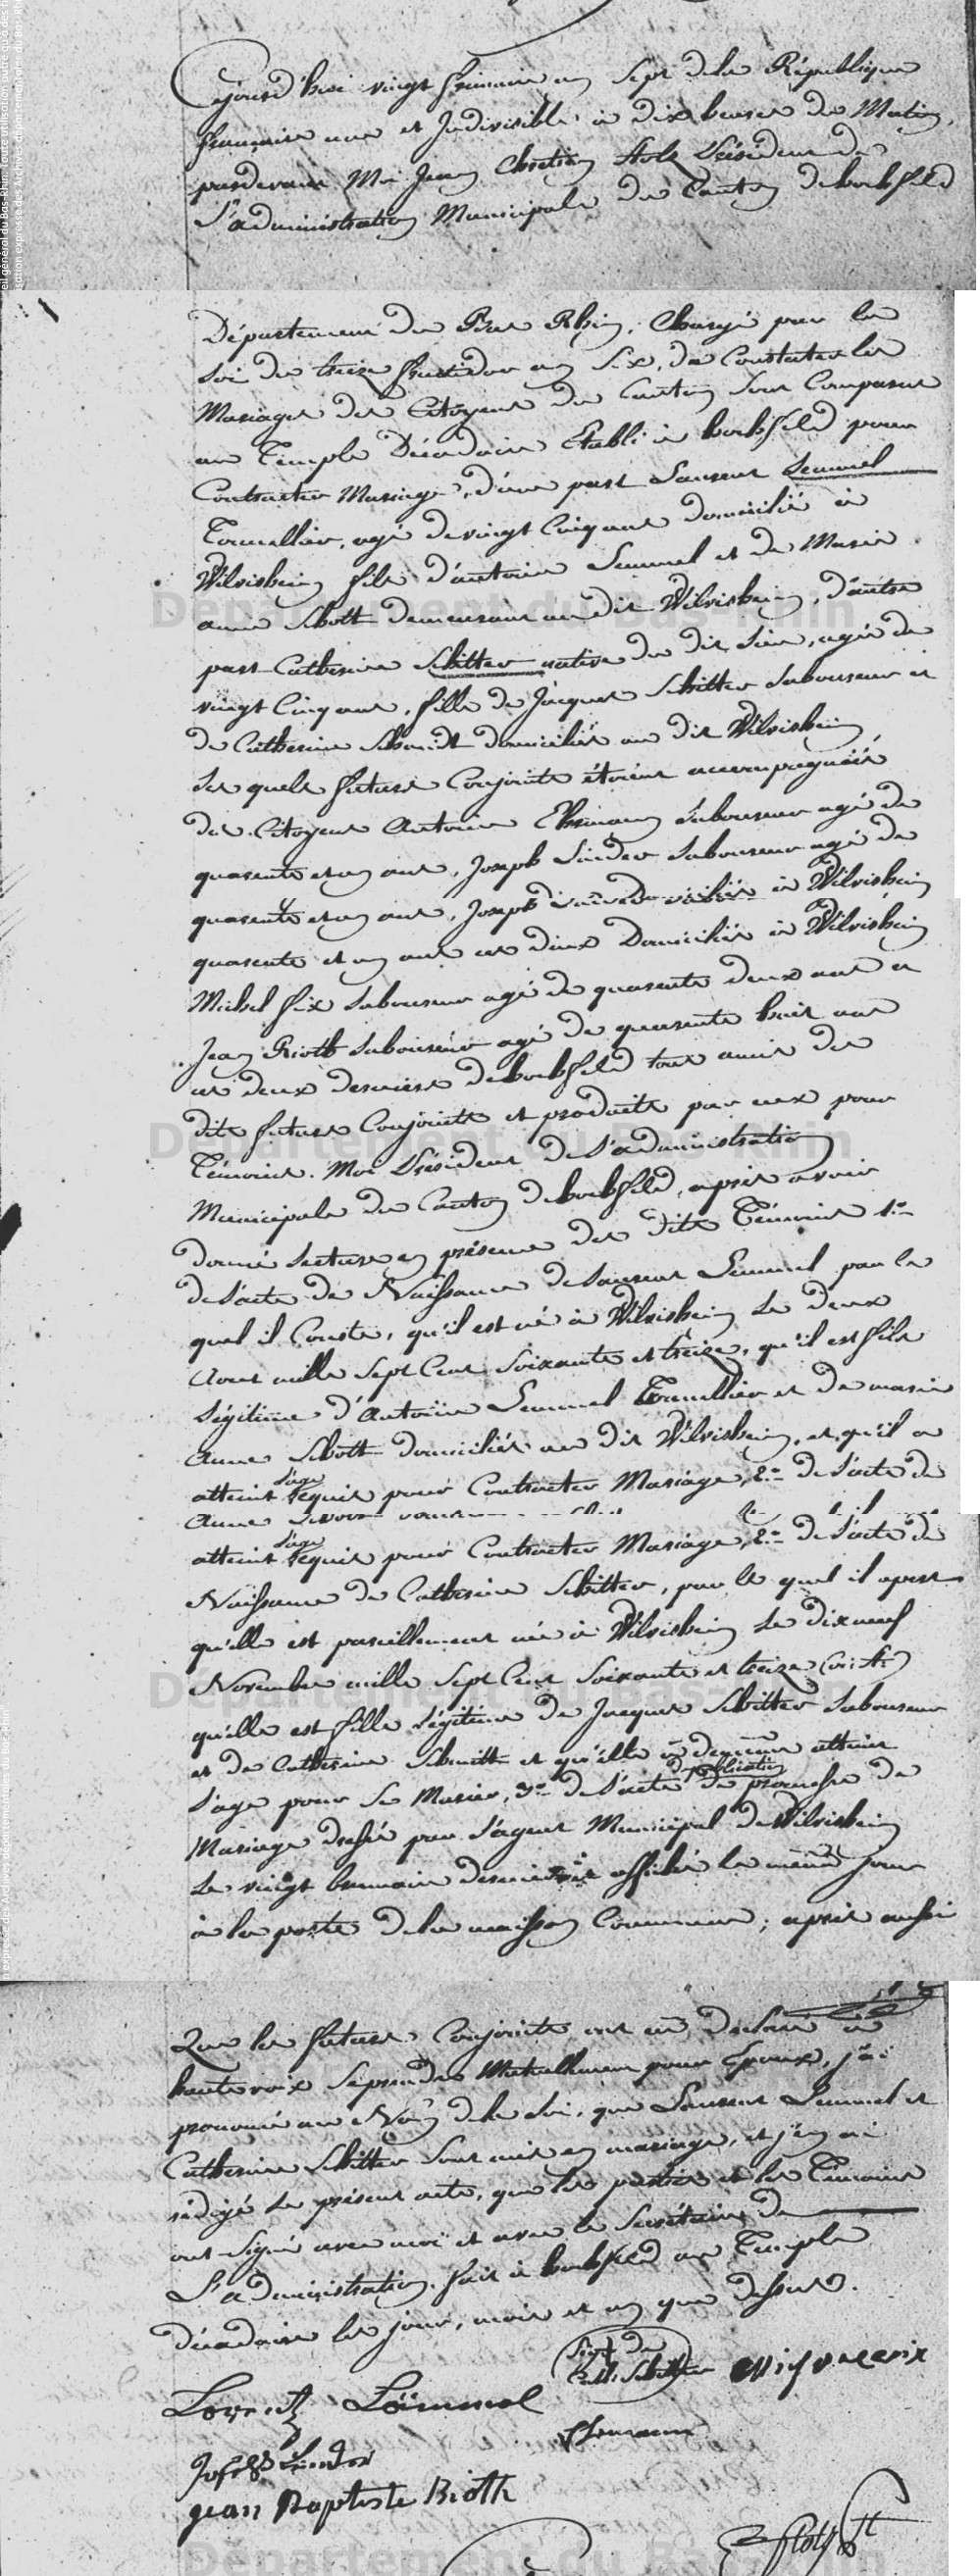 Cejourd'hui vingt frimaire an Sept de la République
française une et Indivisible à dix heures du Matin,
pardevant Moi Jean Chrétien Stolz Président de
l'administration Municipale du Canton de hochfeld
Département du Bas Rhin, Chargé par la
Loi du treize fructidor an Six, de Constater les
Mariages des Citoyens du Canton Sont Comparus
au Temple Décadaire Etabli à hochfeld pour
Contracter Mariage, d'une part Laurent Lemmel
Tonnellier, agé de vingt Cinq ans domicilié à
Wilvisheim fils d'antoine Lemmel et de Marie
anne Schott demeurant au dit Wilvisheim, d'autre
part Catherine Schitter native du dit lieu, agée de
vingt Cinq ans, fille de Jacques Schitter Laboureur et
de Catherine Schmidt domiciliés au dit Wilvisheim,
Les quels futurs Conjoints étoient accompagnés
des Citoyens Antoine Ehrmann Laboureur agé de
quarante et un ans, Joseph Linder Laboureur agé de
quarante et un ans, Joseph
quarante et un ans ces deux Domiciliés à Wilvisheim
Michel fix Laboureur agé de quarante deux ans et
Jean Rioth Laboureur agé de quarante huit ans
ces deux derniers de hochfeld tous amis des
dits futurs Conjoints et produits par eux pour
Témoins. Moi Président de l'administration
Municipale du Canton de hochfeld, après avoir
donné lecture en présence des dits Témoins 1.o
de l'acte de Naissance de Laurent Lemmel par le
quel il Conste, qu'il est né à Wilvisheim Le deux
Aout mille Sept Cent Soixante et treize, qu'il est fils
Légitime d'Antoine Lemmel Tonnellier et de marie
Anne Schott domiciliés au dit Wilvisheim, et qu'il a
l'age
atteint requis pour Contracter Mariage, 2.o de l'acte de
Anne
l'age
atteint requis pour Contracter Mariage, 2.o de l'acte de
Naissance de Catherine Schitter, par le quel il apert
qu'elle est pareillement née à Wilvisheim Le dixneuf
Novembre mille Sept Cent Soixante et treize
qu'elle est fille Légitime de Jacques Schitter Laboureur
et de Catherine Schmitt et qu'elle a de même atteint
publication
l'age pour Se Marier, 3.o de l'acte de promesse de
Mariage dressé par l'agent Municipal de Wilvisheim
Le vingt brumaire dernier et affiché le même jour
à la porte de la maison Commune; après aussi
Que les futurs Conjoints ont eu Déclaré à
haute voix Se prendre Mutuellement pour Epoux, j'ai
prononcé au Nom de la Loi, que Laurent Lemmel et
Catherine Schitter Sont unis en mariage, et j'en ai
rédigé Le présent acte, que les parties et les Témoins
ont Signé avec moi et avec le Secrétaire de
L'administration. fait à hochfeld au Temple
décadaire les jour, mois et an que dessus.
Sign de
Cath. Schitter
Lorentz Lömmel
Ehrmann
Joseph Linder
Jean Baptiste Rioth
Stolz
Département du Bas-Rhin
Département du Bas-Rhin
Département du Bas-Rhin
Département du Bas-Rhin